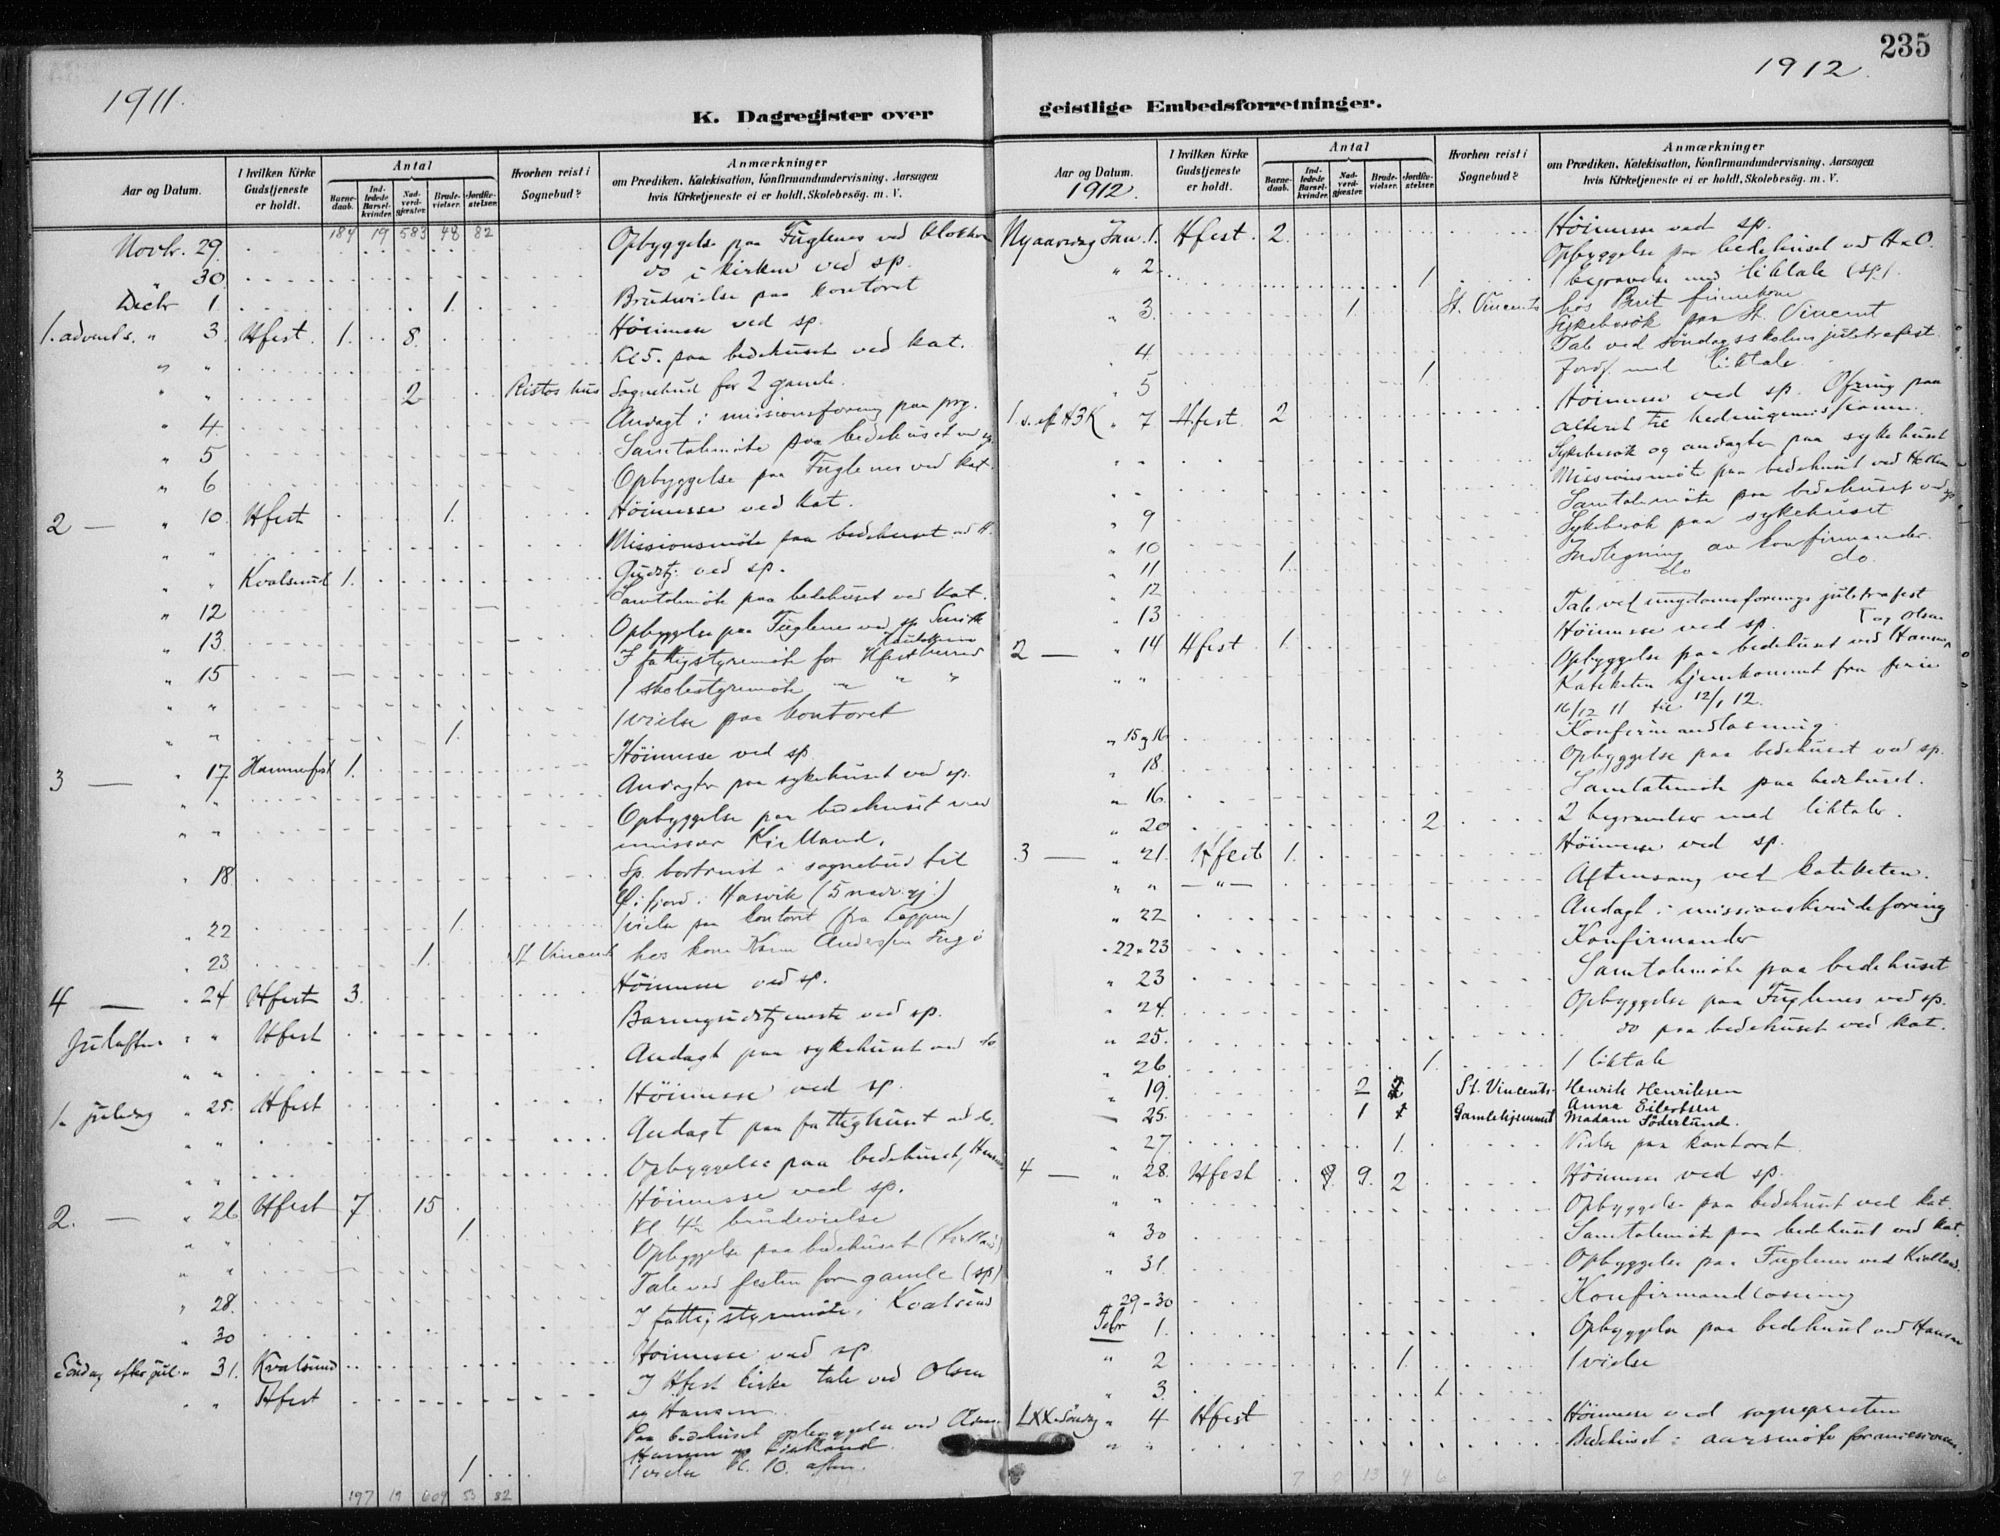 1911.
K. Dagregister over
Aar og Datum.
I hvilken Kirke Gudstjeneste er holdt.
Antal
Barne-daab.
Ind-ledede Barsel-kvinder.
Nad-verd-gjester.
Brude-vielser.
Jordfæ-stelser.
Hvorhen reist i Sognebud?
Anmærkninger
om Prædiken, Katekisation, Konfirmandundervisning. Aarsagen
hvis Kirketjeneste ei er holdt, Skolebesøg. m. V.
184 19 583 48 82
Novbr. 29. Opbyggelse paa Fuglenes ved klokker
" 30 do i kirken ved sp.
Decbr 1 1. Brudevielse paa kontoret
1. advents. " 3. Hfest. 1. 8. Høimesse ved sp.
" " Kl 5. paa bedehuset ved kat.
" " 2 Ristos hus Sognebud for 2 gamle.
" 4. Andagt i missionsforening paa prg.
" 5 Samtalemøte paa bedehuset ved sp.
" 6 Opbyggelse paa Fuglenes ved kat.
2 — " 10. Hfest 1. Høimesse ved kat.
" " Missionsmøte paa bedehuset ved H.
" " Kvalsund 1. Gudstj. ved sp.
" 12 Samtalemøte paa bedehuset ved kat.
" 13. Opbyggelse paa Fuglenes ved sp
" 15 I fattigstyremøte for Hfest herred
" " I skolestyremøte " " "
" " 1. 1 vielse paa kontoret
3 — " 17. Hammerfest 1. Høimesse ved sp.
" " Andagter paa sykehuset ved sp.
" " Opbyggelse paa bedehuset ved
missær Kielland.
" 18 Sp. bortreist i sognebud til
Øifjord i Hasvik (5 nadv. gj.)
" 22 1 1 vielse paa kontoret (fra Loppen)
" 23 1. St. Vincent hos kone Karen Andersen
4 — " 24 Hfest 3. Høimesse ved sp.
Juleaften " " Hfest Barnegudstjeneste ved sp.
" " Andagt paa sykehuset ved do
1. juledag " 25. Hfest Høimesse ved sp.
" " Andagt paa fattighuset ved do.
" " Opbyggelse paa bedehuset, Hansen
2. — " 26 Hfest 7 15 Høimesse ved sp.
" " 1. Kl. 4 brudevielse
" " Opbyggelse paa bedehuset (Kielland)
" 28. Tale ved festen for gamle (sp)
" 30 I fattigstyremøte i Kvalsund
Søndag efter jul " 31. Kvalsund Høimesse ved sp
" " Hfest I Hfest kirke tale ved Olsen
og Hansen.
Paa bedehuset opbyggelse ved Olsen
Hansen og Kielland.
1 1 vielse kl. 10. aften.
197 19 609 53 82
235
1912.
geistlige Embedsforretninger.
Aar og Datum.
1912.
I hvilken Kirke Gudstjeneste er holdt.
Antal
Barne-daab.
Ind-ledede Barsel-kvinder.
Nad-verd-gjester.
Brude-vielser.
Jordfæ-stelser.
Hvorhen reist i Sognebud?
Anmærkninger
om Prædiken, Katekisation, Konfirmandundervisning. Aarsagen
hvis Kirketjeneste ei er holdt, Skolebesøg, m. V.
Nyaarsdag Jan. 1. Hfest. 2. Høimesse ved sp.
Opbyggelse paa bedehuset ved H.O.
" 2 1. 1 begravelse med liktale (sp).
" 3. 1. St. Vincents hos Berit
Sykebesøk paa St. Vincent
" 4 Tale ved søndagsskolens juletræfest.
" 5 1. Jordf. med liktale.
1 s. ef H3K " 7 Hfest. 2 Høimesse ved sp. Ofring paa
alteret til hedningemissionen.
" " Sykebesøk og andagter paa sykehuset
" " Missionsmøte paa bedehuset ved
" 9 Samtalemøte paa bedehuset ved sp
" 10 Sykebesøk paa sykehuset
" 11 1. Indtegning av konfirmander.
" 12 do do.
" 13 Tale ved ungdomsforenings juletræfest
2 — " 14 Hfest 1. Høimesse ved sp.
" " Opbyggelse paa bedehuset ved Hansen og Olsen
Kateketen hjemkommet fra ferie
16/12 11 til 12/1 12.
" 15 og 16 Konfirmandlæsning.
" 18. Opbyggelse paa bedehuset ved sp.
" 16. Samtalemøte paa bedehuset.
" 20 2 2 begravelser med liktaler.
3 — " 21. Hfest 1. Høimesse ved sp.
" " — " — Aftensang ved kateketen.
" 22 Andagt i missionskvindeforening
" 22 " 23 Konfirmander
" 23 Samtalemøte paa bedehuset
" 24. Opbyggelse paa Fuglenes ved sp.
" 25. do paa bedehuset ved kat.
" 26. 1. 1 liktale
" 19. 2 St. Vincents Henrik Henriksen
Anna Eilertsen
25. 1 Gamlehjemmet Madam Söderlund.
" 27. 1. Vielse paa kontoret.
4 — " 28. Hfest 9. 2 Høimesse ved sp.
" " Opbyggelse paa bedehuset ved kat.
" 30 Samtalemøte paa bedehuset ved kat.
" 31. Opbyggelse paa Fuglenes ved Kielland.
29-30 Konfirmandlæsning
Febr 1. Opbyggelse paa bedehuset ved Hansen
" 2 1. 1 vielse
" 3. 1
LXX. Søndag " 4 Hfest Høimesse ved sognepresten
" " Bedehuset: aarsmøte for missionen.
7 0 13 4 6